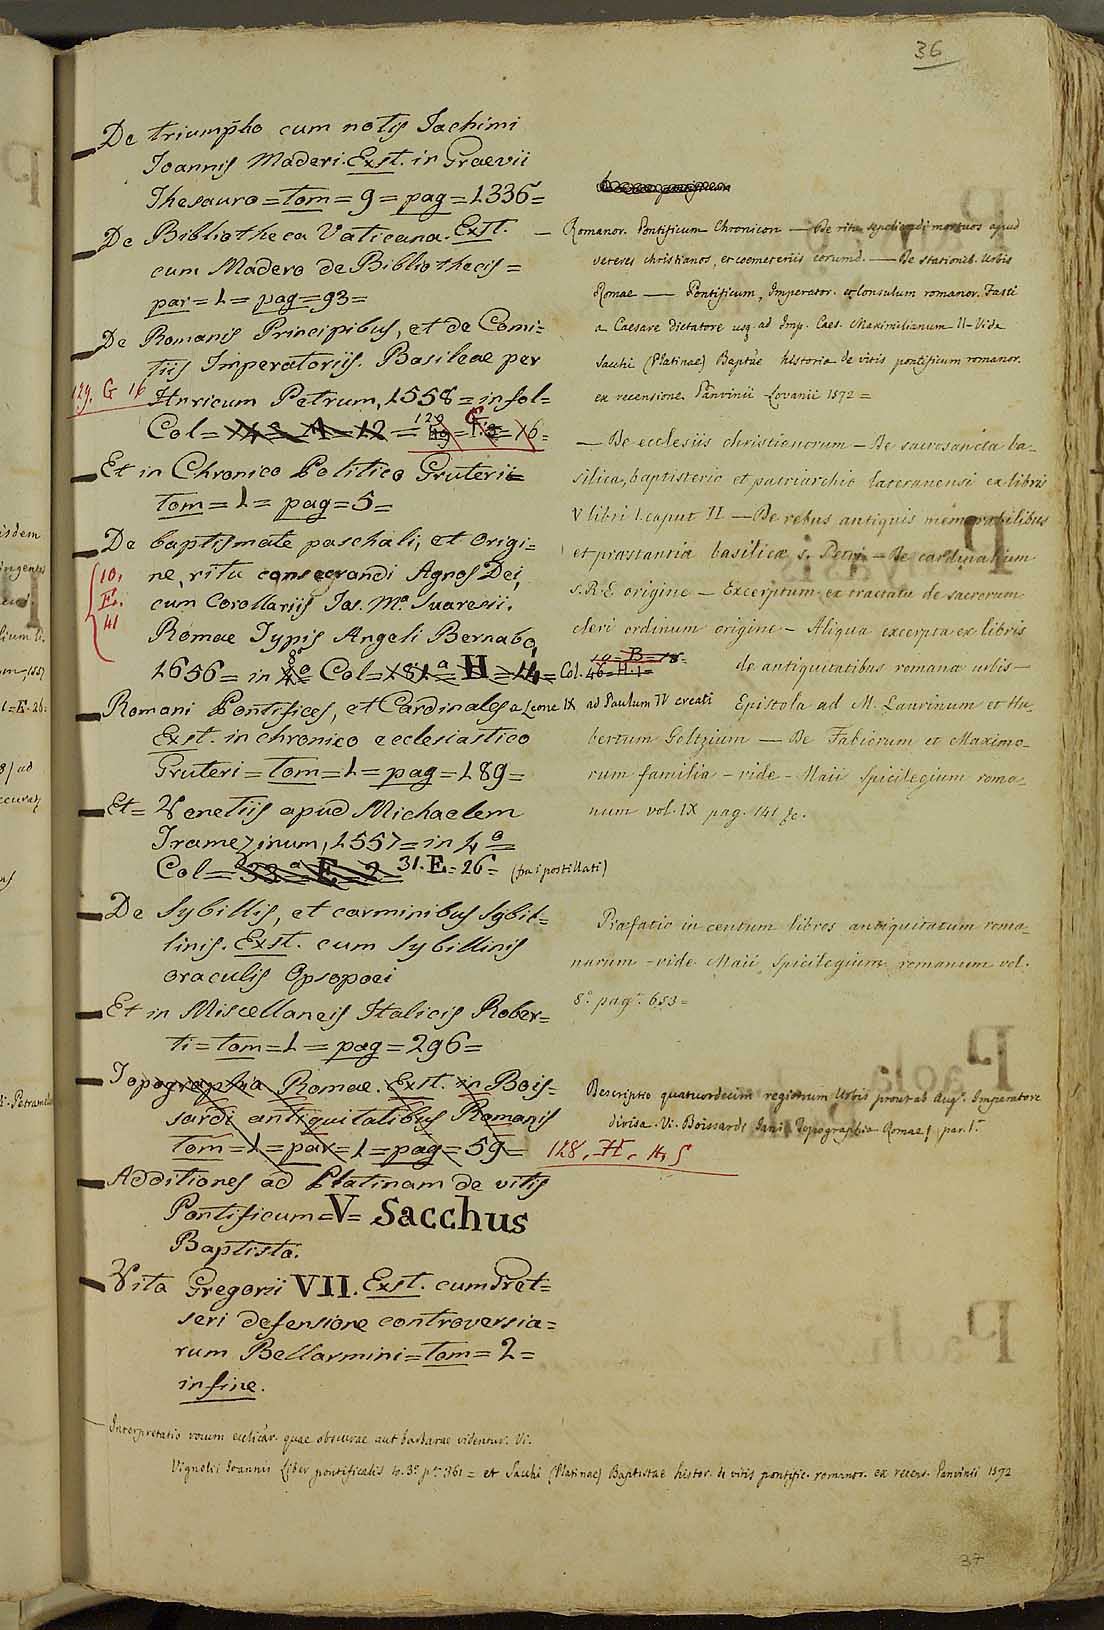 36
De triumpho cum notis Iachimi
Ioannis Maderi. Exst. in Graevii
Thesauro = tom = 9 = pag = 1336 =
De Bibliotheca Vaticana. Exst.
cum Madero de Bibliothecis =
par = 1 = pag = 93 =
De Romanis Principibus, et de Comi=
tiis Imperatoriis. Basileae per
129. G 16
Hnricum Petrum, 1558 = in fol =
Col =
Et in Chronico Politico Gruterii =
tom = 1 = pag = 5 =
De baptismate paschali, et origi=
ne, ritu consecrandi Agnos Dei,
cum Corollariis Ios. Mª Suaresii.
10.
E.
41
Romae Typis Angeli Bernabò,
1656 = in 8º Col = 181ª = H = 14 = Col. 46 = H. 1 =
19 = B = 18 =
Romani Pontifices, et Cardinales a Leone IX ad Paulum IV creati
Exst. in chronico ecclesiastico
Gruteri = tom = 1 = pag = 189 =
Et = Venetiis apud Michaelem
Tramezinum, 1557 = in 4ª =
Col = 33ª = E = 2 31. E = 26 = (fra i postillati)
De Sybillis, et carminibus Sybil=
linis. Exst. cum Sybillinis
oraculis Opsopoei
Et in Miscellaneis Italicis Rober=
ti = tom = 1 = pag = 296 =
Topographia Romae. Exst. in Bois=
sardi antiquitatibus Romanis
tom = 1 = par = 1 = pag = 59 = 128. H. 4, 5
Additiones ad Platinam de vitis
Pontificum = V = Sacchus
Baptista.
Vita Gregorii VII. Exst. cum Gret=
seri defensione controversia=
rum Bellarmini = tom = 2 =
in fine.
Interpretatio vocum eccliâr. quae obscurae aut barbarae videntur. Vi.
Vignolii Ioannis Liber pontificalis to. 3º pª 361 = et Sacchi (Platinae) Baptistae histor. de vitis pontific. romanor. ex recens. Panvinii 1572
— Romanor. Pontificum Chronicon — De ritu sepeliendi mortuos apud
veteres christianos, et coemeteriis eorumd. — De stationib. Urbis
Romae — Pontificum, Imperator. et Consulum romanor. Fasti
a Caesare Dictatore usq. ad Imp. Caes. Maximilianum II - Vide
Sacchi (Platinae) Baptâe historia de vitis pontificum romanor.
ex recensione Panvinii Lovanii 1572 =
— De ecclesiis christianorum — De sacrosancta ba-
silica, baptisterio et patriarchio lateranensi ex libris
V libri 1. caput II — De rebus antiquis memorabilibus
et praestantia basilicae S. Petri — De cardinalium
S. R. E. origine — Excerptum ex tractatu de sacrorum
cleri ordinum origine — Aliqua excerpta ex libris
de antiquitatibus romanae urbis —
Epistola ad M. Laurinum et Hu-
bertum Goltzium — De Fabiorum et Maximo-
rum familia — vide — Maii Spicilegium roma-
num vol. IX pag. 141 &c.
Praefatio in centum libros antiquitatum roma-
narum — vide Maii, Spicilegium romanum vol.
8º pagª 653 =
Descriptio quatuordecim regionum Urbis prout ab Augº Imperatore
divisa. Vi. Boissardi Iani Topographia Romae, par. 1ª
37